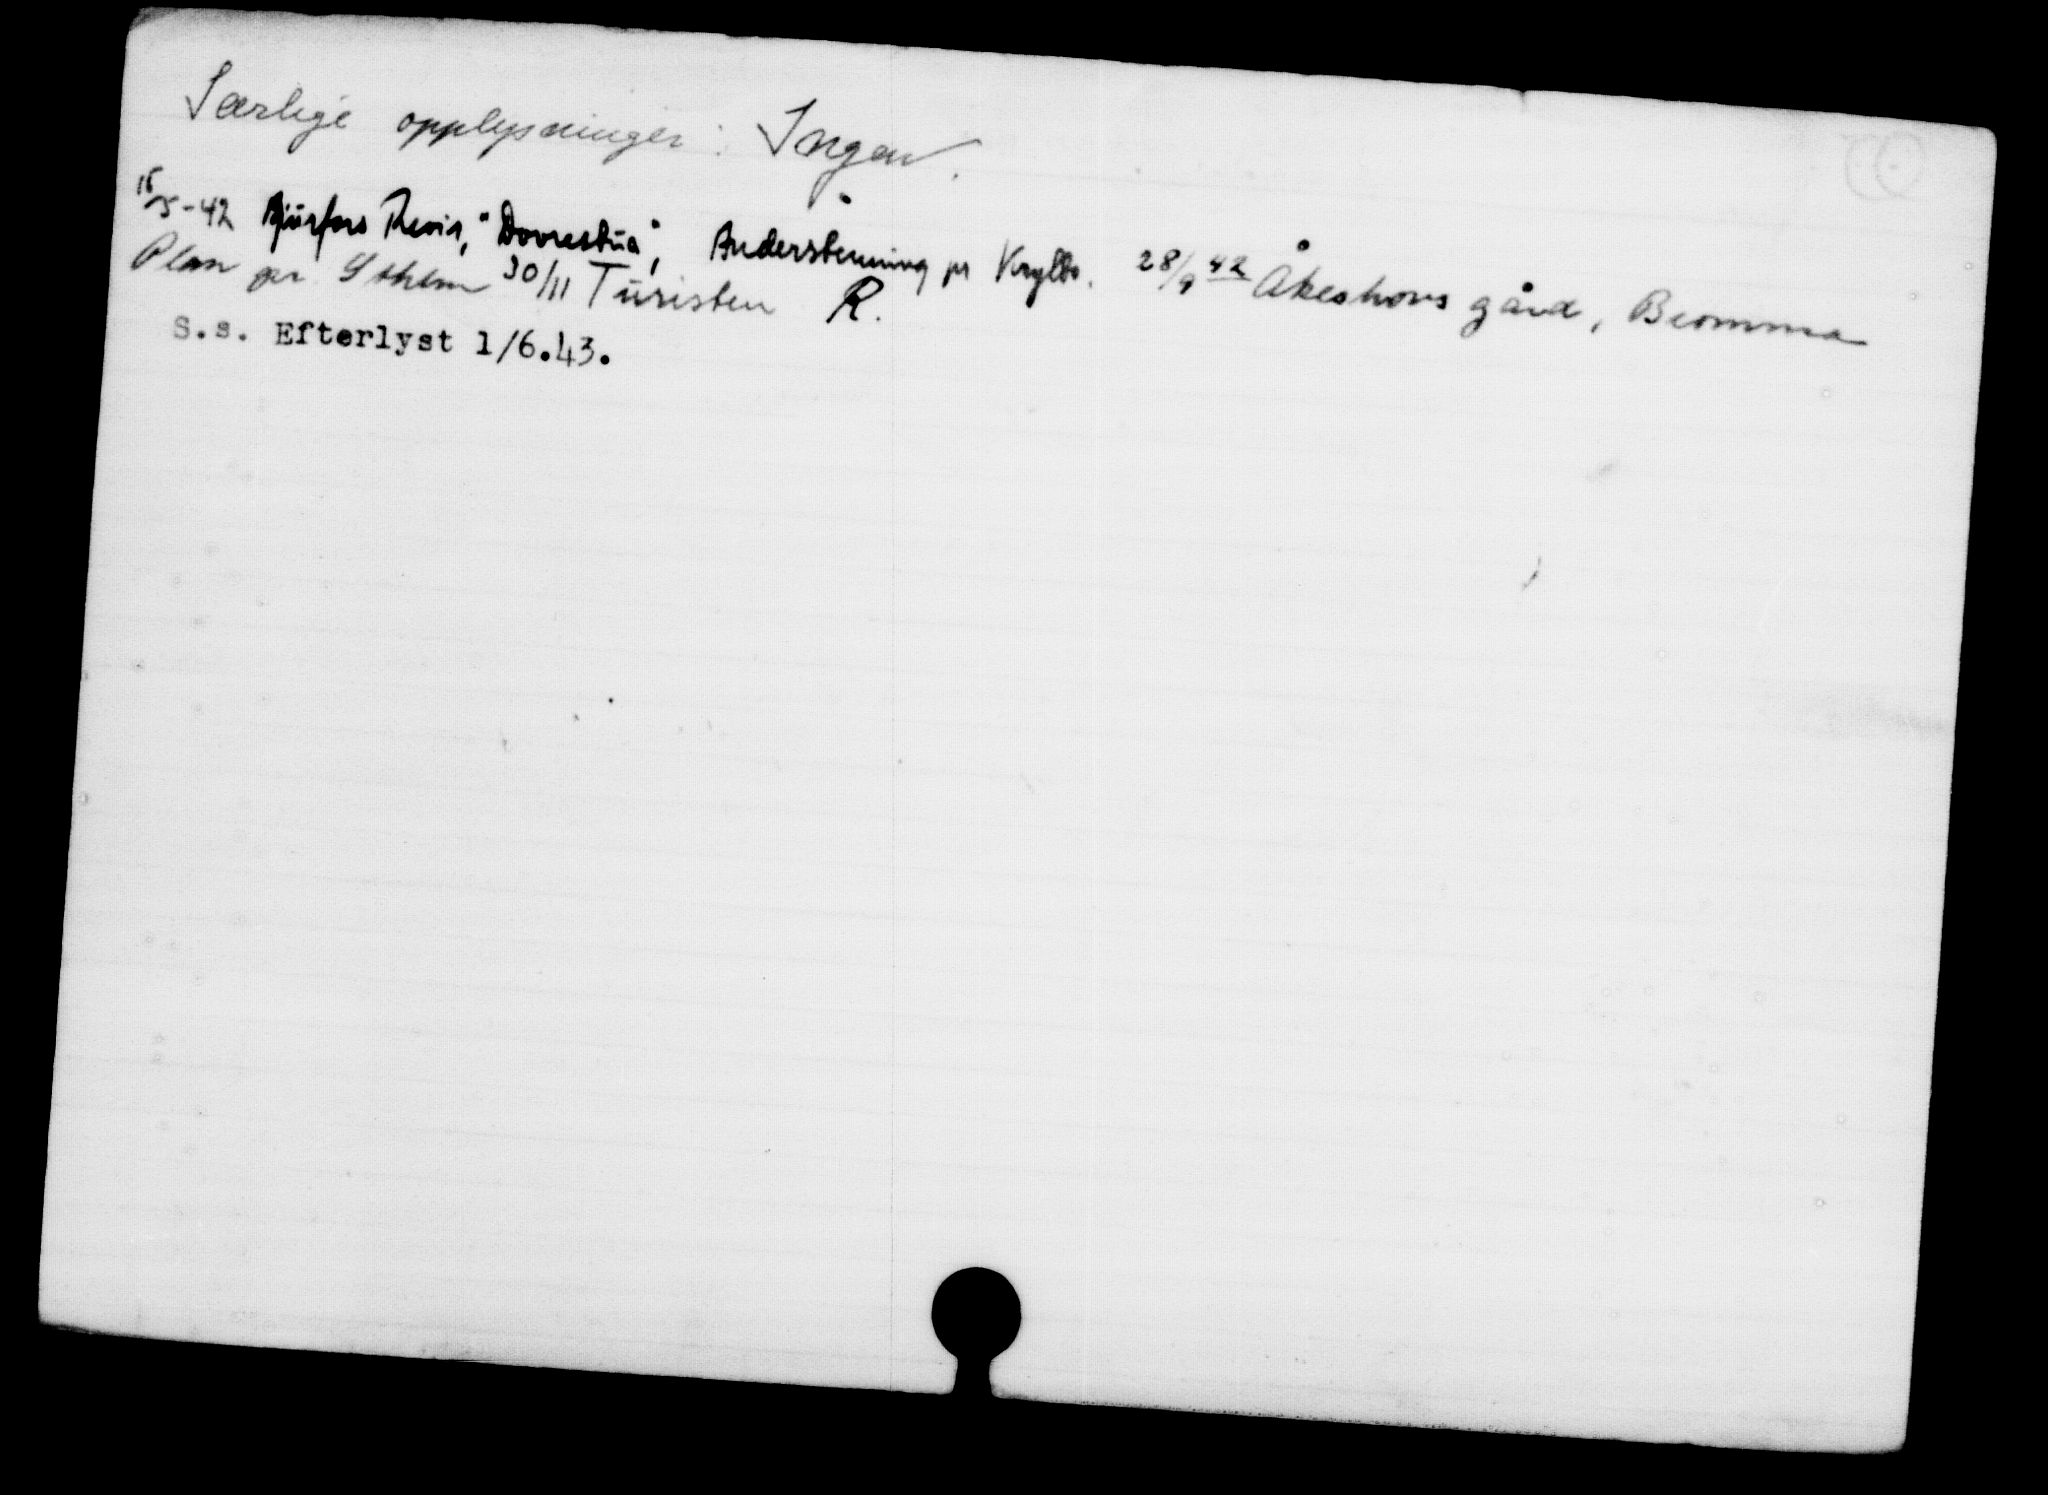 Særlige opplysninger: Ingen.
15/5-42 Bjurfors Revir, "Dovrestua", Andersbenning pr Krylbo. 28/9 42 Åkeshovs gård, Bromma
Plan pr. Sthlm 30/11 Turisten R.
S.s. Efterlyst 1/6.43.